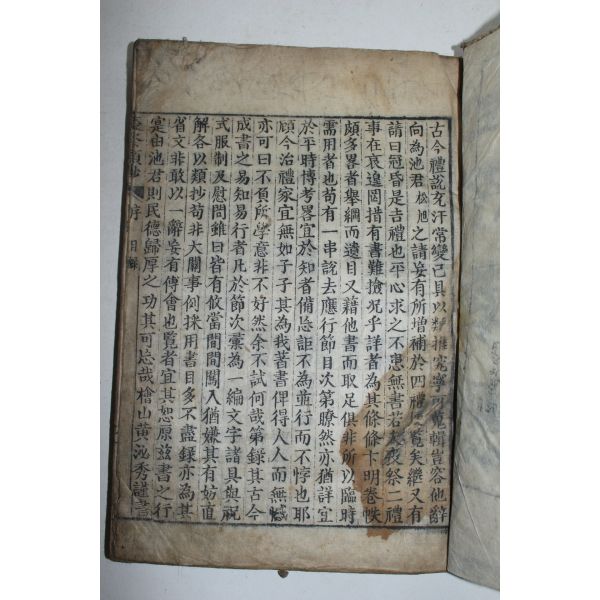 古今禮說充汗常變已具以類推究寧可輯豈容他辭
向為池君松旭之請妄有所增補於四禮覽矣繼又有
請曰冠昏是吉禮也平心求之不患無書若祭二禮
事在哀遑罔措有書難撿况乎詳者為其條條卞明卷帙
頗多畧者舉綱而遺目又藉他書而取足俱非所以臨時
需用者也苟有一串說去應行節目次第瞭然亦猶詳宜
於平時博考畧宜於知者備忘詎不為並行而不悖也耶
顧今治禮家宜無如子子其為我著書俾得人人而無憾
亦可曰不負所學意非不好然余不試何哉第録其古今
成書之易知易行者凡於節次彙為一編文字諸具與祝
式服制及慰問雖曰皆有攸當間間闖入猶嫌其有妨直
解各以類抄苟非大關事例採用書目多不盡録亦為其
省文非敢以一辭妄有傅會也覽者宜其恕原玆書之行
寔由池君則民德歸厚之功其可忘哉檜山黃泌秀謹書
序 目録